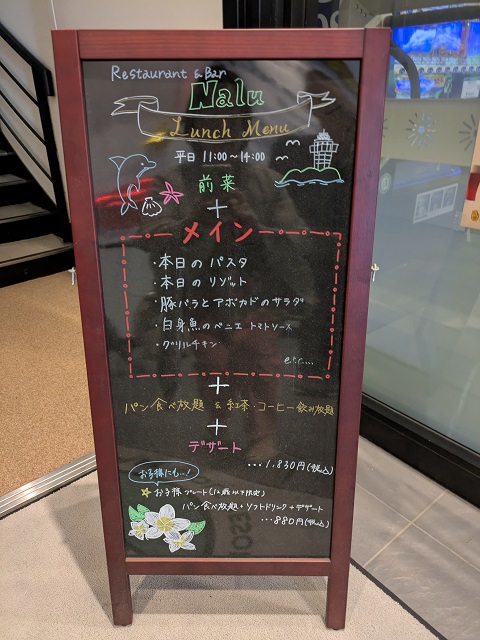 Restaurant & Bar
Nalu
Lunch Menu
平日 11:00〜14:00
前菜
+
メイン
・本日の パスタ
・本日の リゾット
・豚バラとアボカドのサラダ
・白身魚のベニエ トマトソース
・グリルチキン
e.t.c....
+
パン食べ放題 & 紅茶・コーヒー飲み放題
+
デザート
・・・1,830円(税込)
お子様にも…!
☆お子様プレート(12歳以下限定)
パン食べ放題+ソフトドリンク+デザート
・・・880円(税込)